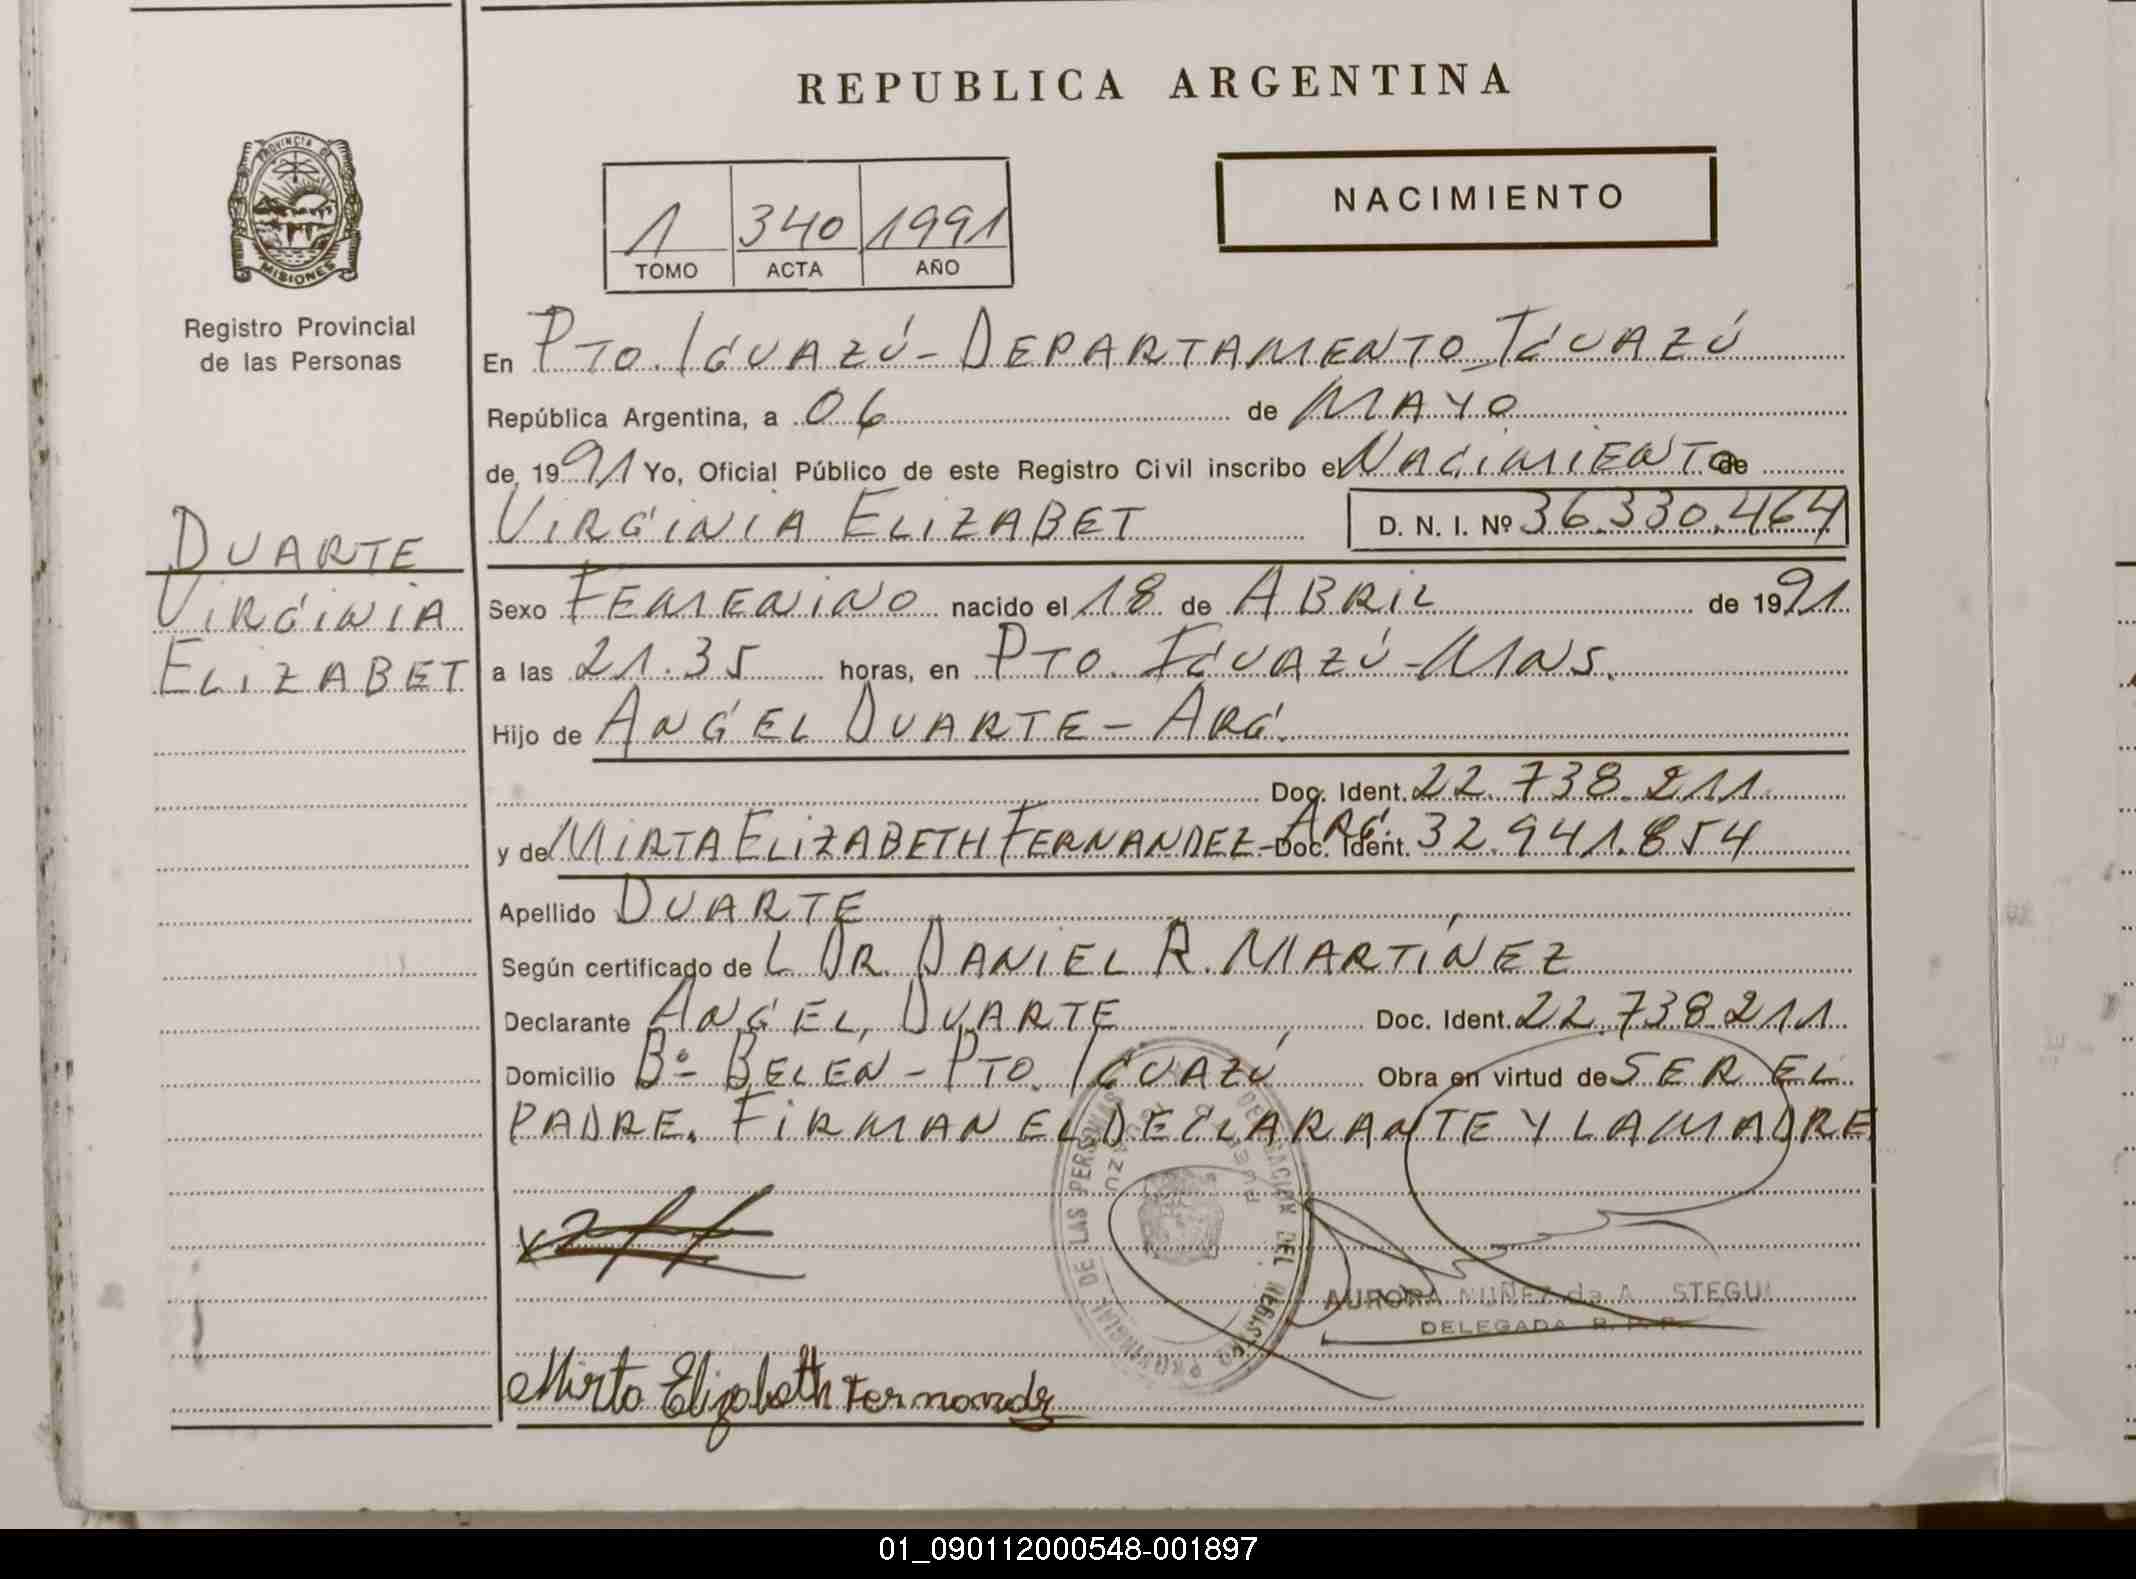 REPUBLICA ARGENTINA
PROVINCIA DE
MISIONES
Registro Provincial
de las Personas
1 340 1991
TOMO ACTA AÑO
NACIMIENTO
En PTO. IGUAZÚ - DEPARTAMENTO IGUAZÚ
República Argentina, a 06 de MAYO
de 1991 Yo, Oficial Público de este Registro Civil inscribo el NACIMIENTO de
VIRGINIA ELIZABET D. N. I. Nº 36.330.464
DUARTE
VIRGINIA
ELIZABET
Sexo FEMENINO nacido el 18 de ABRIL de 1991
a las 21.35 horas, en PTO. IGUAZÚ - MNS.
Hijo de ANGEL DUARTE - ARG.
Doc. Ident. 22.738.211
y de MIRTA ELIZABETH FERNANDEZ - ARG. Doc. Ident. 32.941.854
Apellido DUARTE
Según certificado de L DR. DANIEL R. MARTÍNEZ
Declarante ANGEL, DUARTE Doc. Ident. 22.738.211
Domicilio Bº BELEN - PTO. IGUAZÚ Obra en virtud de SER EL
PADRE. FIRMAN EL DECLARANTE Y LA MADRE
DELEGACION DEL REGISTRO PROVINCIAL DE LAS PERSONAS
AURORA NUÑEZ de
DELEGADA R. P. P.
Mirta Elizabeth Fernandez
01_090112000548-001897